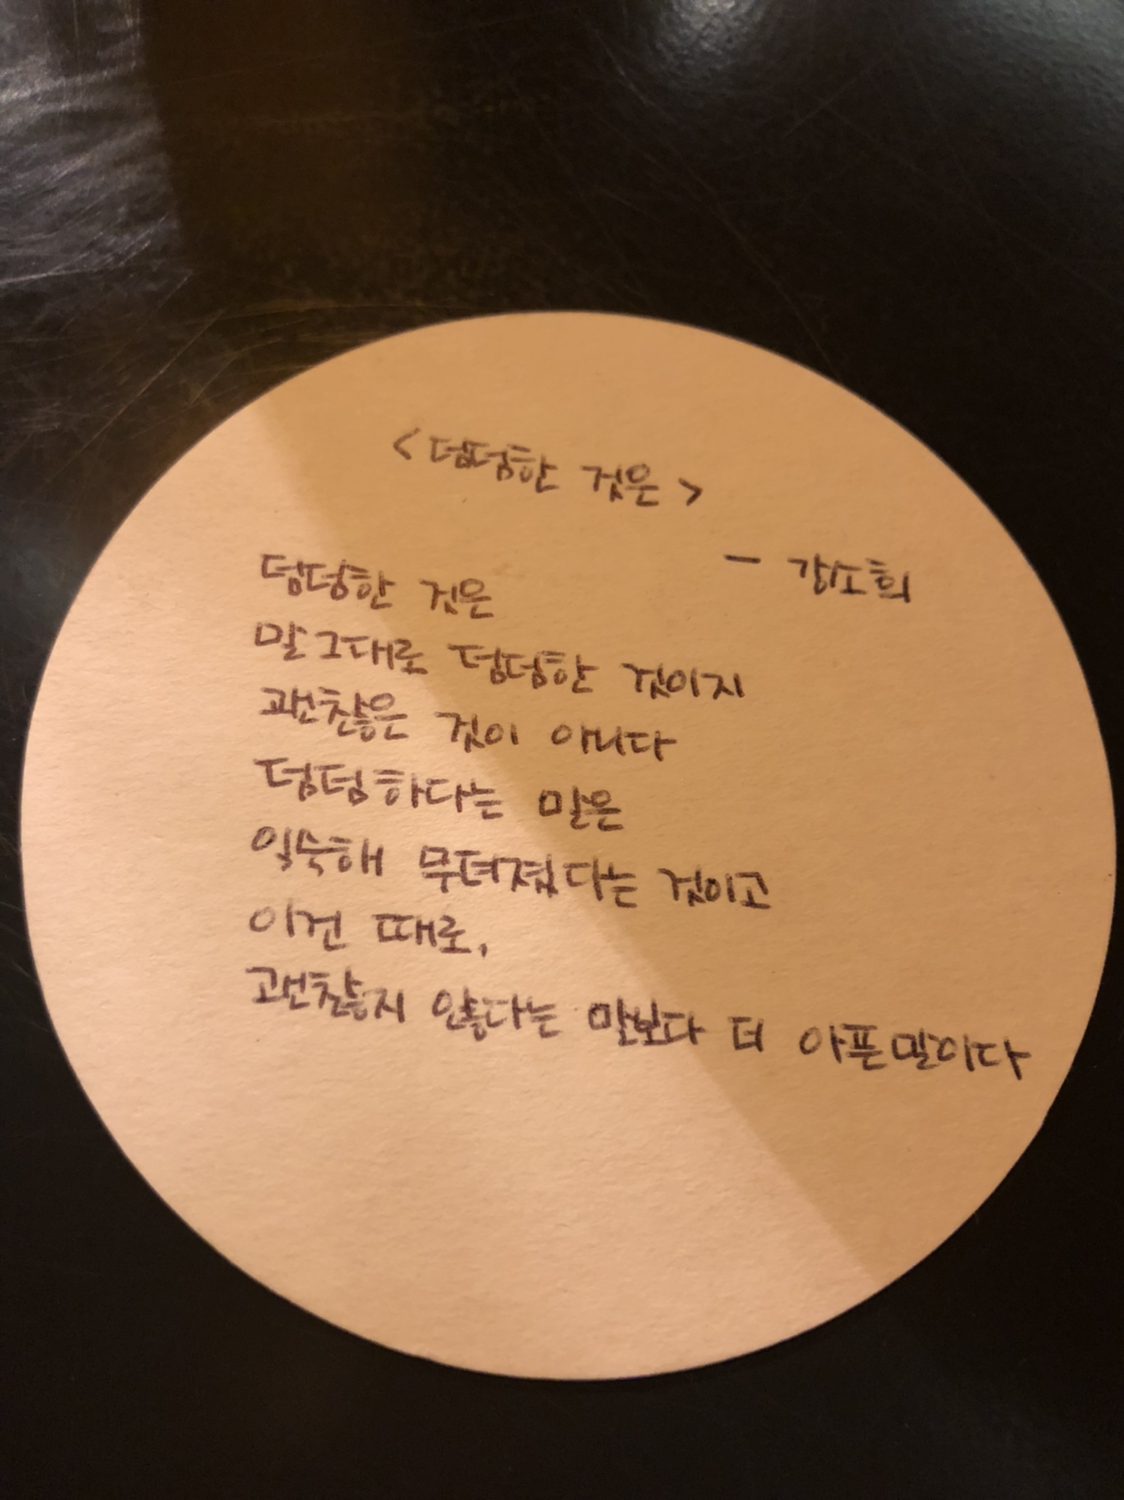 <덤덤한 것은>
- 강소희
덤덤한 것은
말 그대로 덤덤한 것이지
괜찮은 것이 아니다
덤덤하다는 말은
익숙해 무뎌졌다는 것이고
이건 때로,
괜찮지 않다는 말보다 더 아픈 말이다